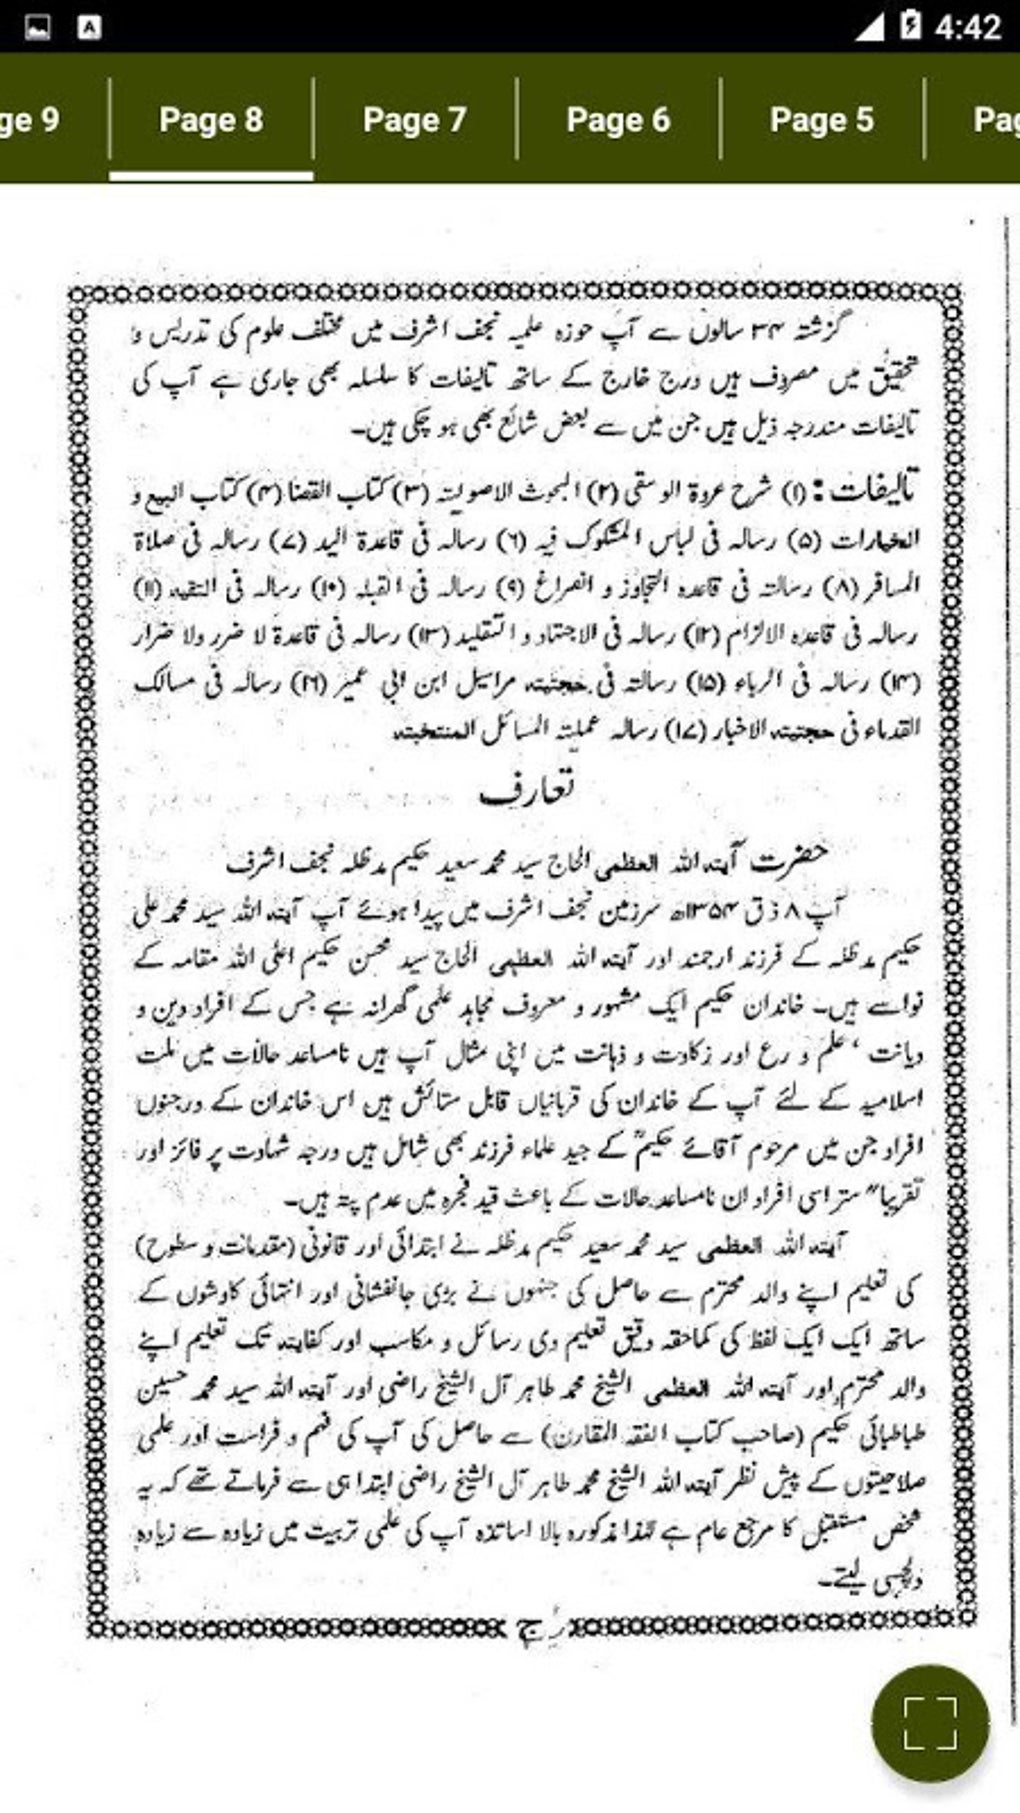 4:42
ge 9
Page 8
Page 7
Page 6
Page 5
Pag
گزشتہ ۳۴ سالوں سے آپ حوزہ علمیہ نجف اشرف میں مختلف علوم کی تدریس و
تحقیق میں مصروف ہیں درج خارج کے ساتھ تالیفات کا سلسلہ بھی جاری ہے آپ کی
تالیفات مندرجہ ذیل ہیں جن میں سے بعض شائع بھی ہو چکی ہیں۔
تالیفات : (۱) شرح عروۃ الوسقی (۲) البحوث الاصولیتہ (۳) کتاب القضا (۴) کتاب البیع و
الخیارات (۵) رسالہ فی لباس المشکوک فیہ (۶) رسالہ فی قاعدۃ الید (۷) رسالہ فی صلاۃ
المسافر (۸) رسالتہ فی قاعدہ التجاوز و الفراغ (۹) رسالہ فی القبلہ (۱۰) رسالہ فی التقیہ (۱۱)
رسالہ فی قاعدہ الالزام (۱۲) رسالہ فی الاجتہاد و التقلید (۱۳) رسالہ فی قاعدۃ لا ضرر ولا ضرار
(۱۴) رسالہ فی الرباء (۱۵) رسالتہ فی حجتیتہ مراسیل ابن ابی عمیر (۱۶) رسالہ فی مسالک
القدماء فی حجتیتہ الاخبار (۱۷) رسالہ عملیتہ المسائل المنتخبتہ
تعارف
حضرت آیتہ اللہ العظمی الحاج سید محمد سعید حکیم مدظلہ نجف اشرف
آپ ۸ ذق ۱۳۵۴ھ سرزمین نجف اشرف میں پیدا ہوئے آپ آیتہ اللہ سید محمد علی
حکیم مدظلہ کے فرزند ارجمند اور آیتہ اللہ العظمی الحاج سید محسن حکیم اعلی اللہ مقامہ کے
نواسے ہیں۔ خاندان حکیم ایک مشہور و معروف مجاہد علمی گھرانہ ہے جس کے افراد دین و
دیانت ، علم و رع اور زکاوت و ذہانت میں اپنی مثال آپ ہیں نامساعد حالات میں ملت
اسلامیہ کے لئے آپ کے خاندان کی قربانیاں قابل ستائش ہیں اس خاندان کے درجنوں
افراد جن میں مرحوم آقائے حکیمؒ کے جید علماء فرزند بھی شامل ہیں درجہ شہادت پر فائز اور
تقریبا" ستر اسی افراد ان نامساعد حالات کے باعث قید میں عدم پتہ ہیں۔
آیتہ اللہ العظمی سید محمد سعید حکیم مدظلہ نے ابتدائی اور قانونی (مقدمات و سطوح)
کی تعلیم اپنے والد محترم سے حاصل کی جنہوں نے بڑی جانفشانی اور انتہائی کاوشوں کے
ساتھ ایک ایک لفظ کی کماحقہ دقیق تعلیم دی رسائل و مکاسب اور کفایتہ تک تعلیم اپنے
والد محترم اور آیتہ اللہ العظمی الشیخ محمد طاہر آل الشیخ راضی اور آیتہ اللہ سید محمد حسین
طباطبائی حکیم (صاحب کتاب الفقہ المقارن) سے حاصل کی آپ کی فہم و فراست اور علمی
صلاحیتوں کے پیش نظر آیتہ اللہ الشیخ محمد طاہر آل الشیخ راضی ابتدا ہی سے فرماتے تھے کہ یہ
شخص مستقبل کا مرجع عام ہے لہذا مذکورہ بالا اساتذہ آپ کی علمی تربیت میں زیادہ سے زیادہ
دلچسپی لیتے۔